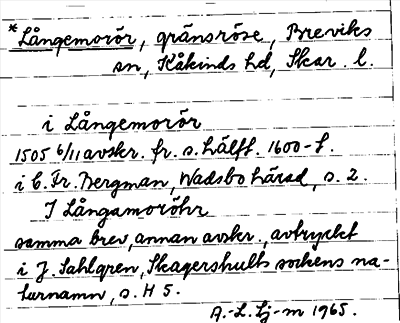 *Långemorör, gränsröse, Breviks
sn, Kåkinds hd, Skar. l.
i Långemorör
1505 6/11 avskr. fr. s. hälft. 1600-t.
i C. Fr. Bergman, Wadsbo härad, s. 2.
I Långamoröhr
samma brev, annan avskr., avtryckt
i J. Sahlgren, Skagershults sockens na-
turnamn, s. H 5.
A.-L. Lj-m 1965.